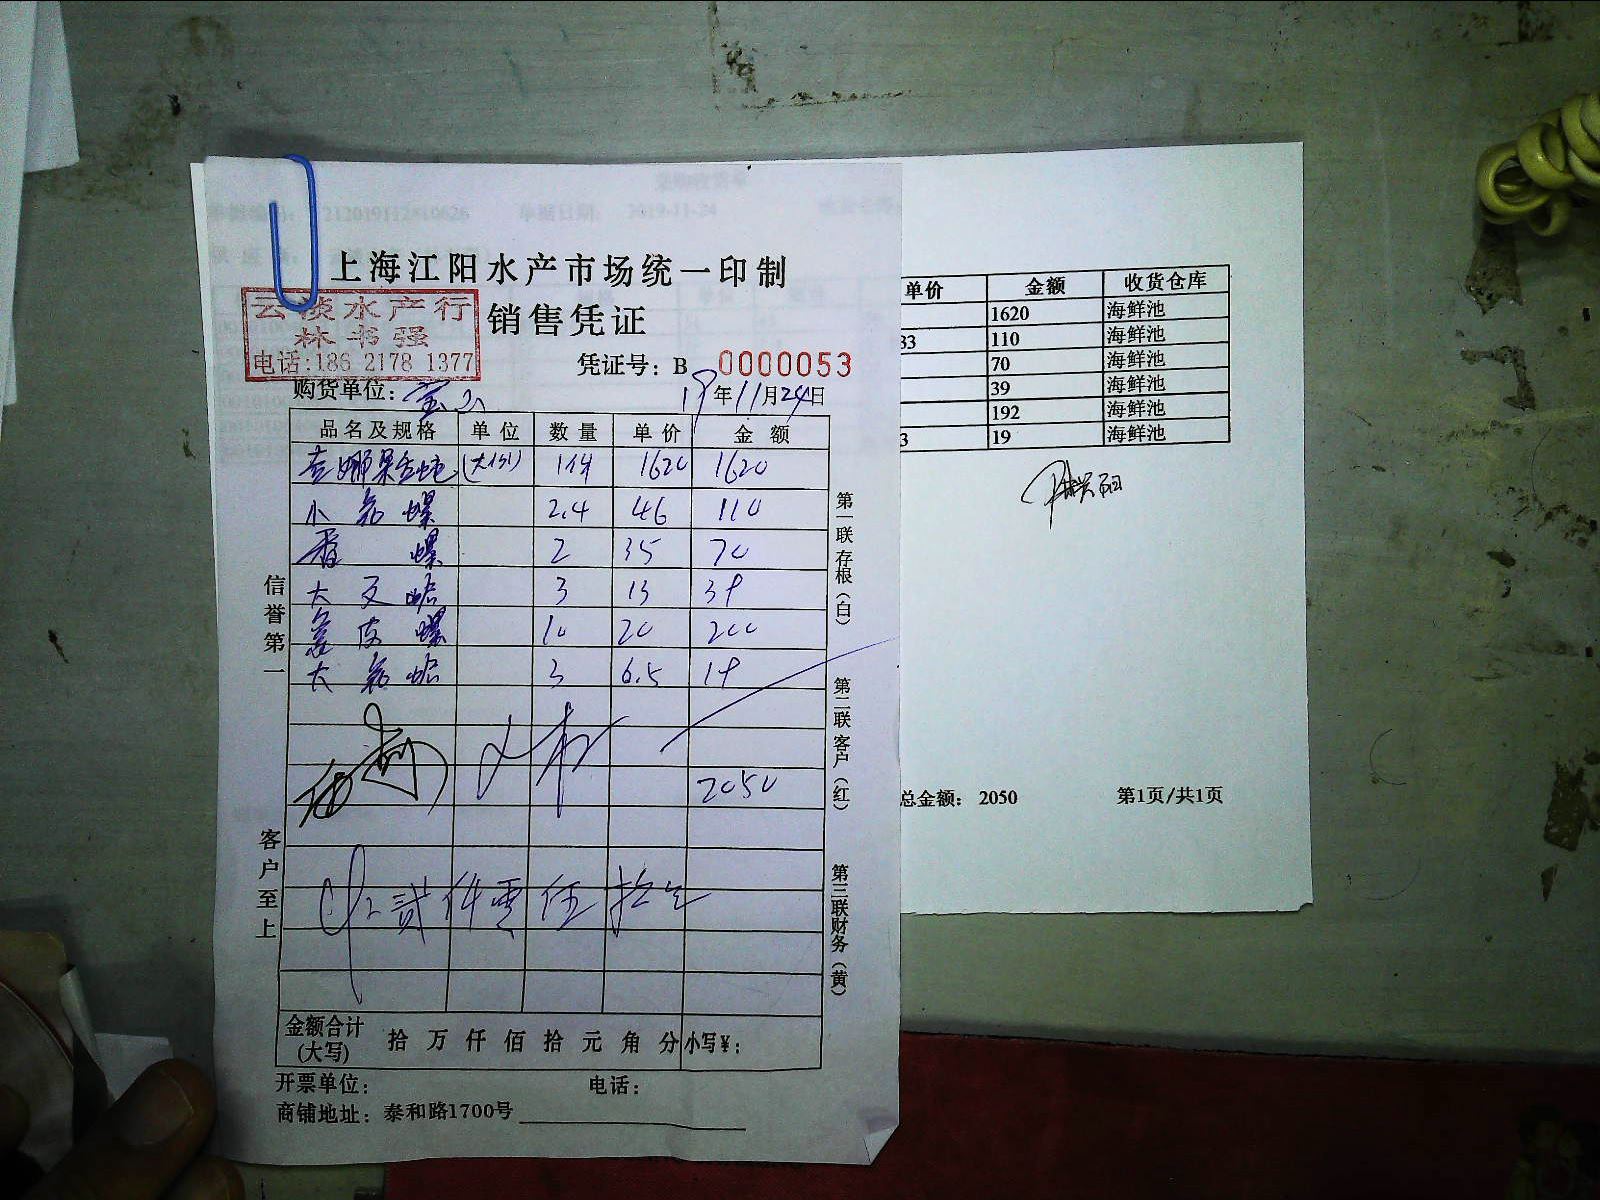 上海江阳水产市场统一印制
云淡水产行
林书强
电话:186 2178 1377
销售凭证
凭证号: B 0000053
购货单位: 宝山
19年11月24日
品名及规格 单位 数量 单价 金额
(大份) 1件 1620 1620
小 螺 2.4 46 110
香螺 2 35 70
大 蛤 3 13 39
皮螺 10 20 200
大 蛤 3 6.5 19
2050
贰仟零伍拾元
金额合计(大写) 拾 万 仟 佰 拾 元 角 分 小写¥:
开票单位: 电话:
商铺地址: 泰和路1700号
信誉第一
客户至上
第一联存根(白)
第二联客户(红)
第三联财务(黄)
212019112410626
单据日期: 2019-11-24
单价 金额 收货仓库
1620 海鲜池
33 110 海鲜池
70 海鲜池
39 海鲜池
192 海鲜池
3 19 海鲜池
总金额: 2050 第1页/共1页